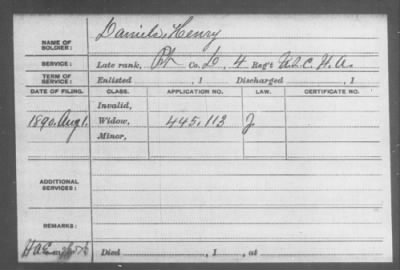 NAME OF SOLDIER: Daniels, Henry
SERVICE: Late rank, Pvt Co. D, 4 Reg't U.S.C.H.A.
TERM OF SERVICE: Enlisted , 1 Discharged , 1
DATE OF FILING. CLASS. APPLICATION NO. LAW. CERTIFICATE NO.
Invalid,
1890. Aug 1. Widow, 445.113 J
Minor,
ADDITIONAL SERVICES:
REMARKS:
Died , 1 , at